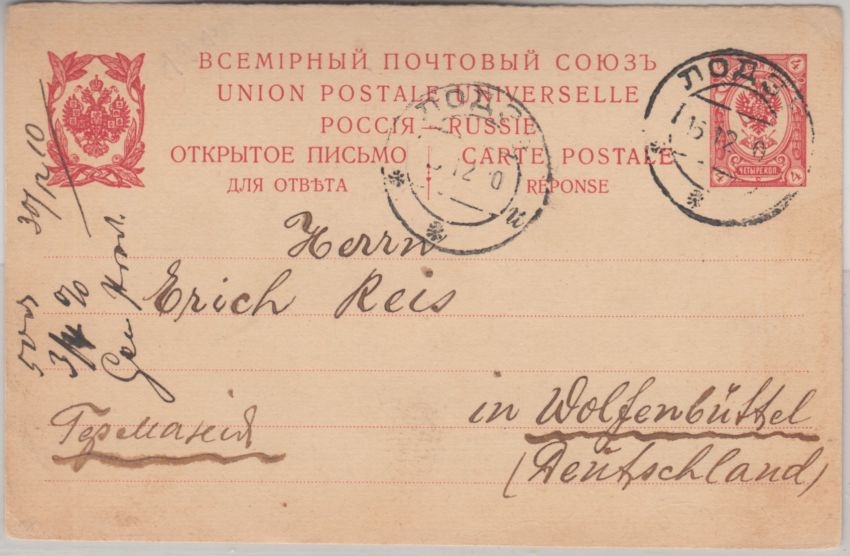 ВСЕМІРНЫЙ ПОЧТОВЫЙ СОЮЗЪ
UNION POSTALE UNIVERSELLE
РОССІЯ – RUSSIE
ОТКРЫТОЕ ПИСЬМО CARTE POSTALE
ДЛЯ ОТВѢТА RÉPONSE
4 4
ЧЕТЫРЕ КОП.
4 4
ЛОДЗ
15 12 0
ЛОДЗ
12 0
Herrn
Erich Reis
in Wolfenbüttel
(Deutschland)
Германія
30/12 10